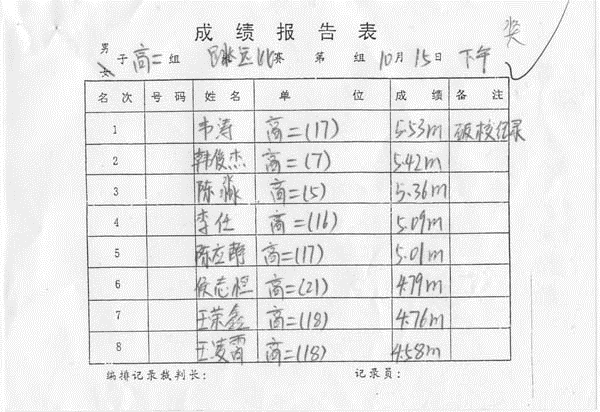 成绩报告表
奖
男
女 子 高二 组 跳远比赛 第 组 10月15日 下午
名次 号码 姓名 单位 成绩 备注
1 韦涛 高二(17) 5.53m 破校纪录
2 韩俊杰 高二(7) 5.42m
3 陈淼 高二(5) 5.36m
4 李任 高二(16) 5.09m
5 陈应 高二(17) 5.01m
6 侯志恒 高二(21) 4.79m
7 王荣鑫 高二(18) 4.76m
8 王凌霄 高二(18) 4.58m
编排记录裁判长: 记录员: